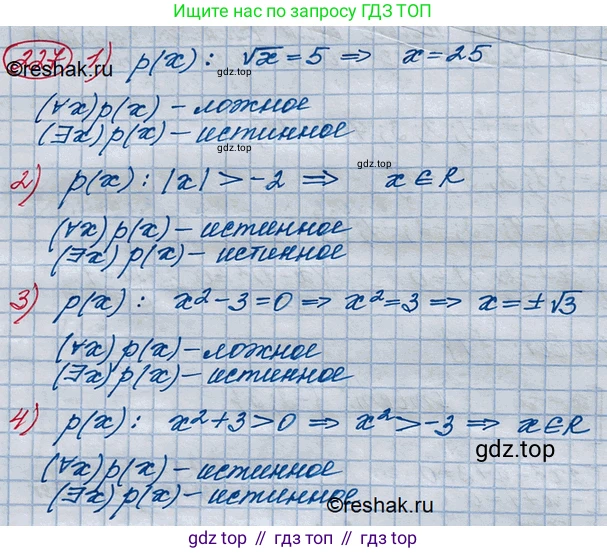 Ищите нас по запросу ГДЗ ТОП
227 1) p(x): √x = 5 ⇒ x = 25
©reshak.ru
gdz.top
(∀x)p(x) – ложное
(∃x)p(x) – истинное
2) p(x): |x| > -2 ⇒ x ∈ R
gdz.top
(∀x)p(x) – истинное
(∃x)p(x) – истинное
3) p(x): x² – 3 = 0 ⇒ x² = 3 ⇒ x = ±√3
(∀x)p(x) – ложное
(∃x)p(x) – истинное
4) p(x): x² + 3 > 0 ⇒ x² > -3 ⇒ x ∈ R
gdz.top
(∀x)p(x) – истинное
(∃x)p(x) – истинное
©reshak.ru
gdz.top // gdz.top // gdz.top